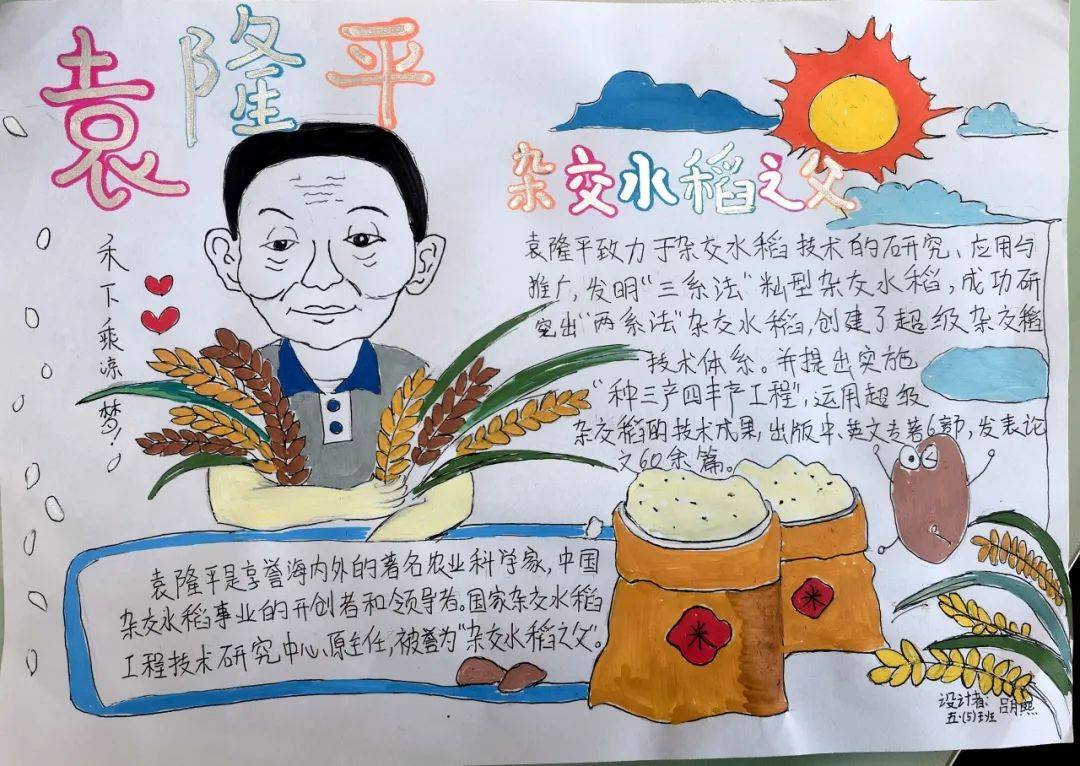 袁隆平
杂交水稻之父
禾下乘凉梦!
袁隆平致力于杂交水稻技术的研究、应用与
推广,发明“三系法”籼型杂交水稻,成功研
究出“两系法”杂交水稻,创建了超级杂交稻
技术体系。并提出实施
“种三产四丰产工程”,运用超级
杂交稻的技术成果,出版中、英文专著6部,发表论
文60余篇。
袁隆平是享誉海内外的著名农业科学家,中国
杂交水稻事业的开创者和领导者。国家杂交水稻
工程技术研究中心原主任,被誉为“杂交水稻之父”。
米
米
设计者:吕明熙
五·(5)班